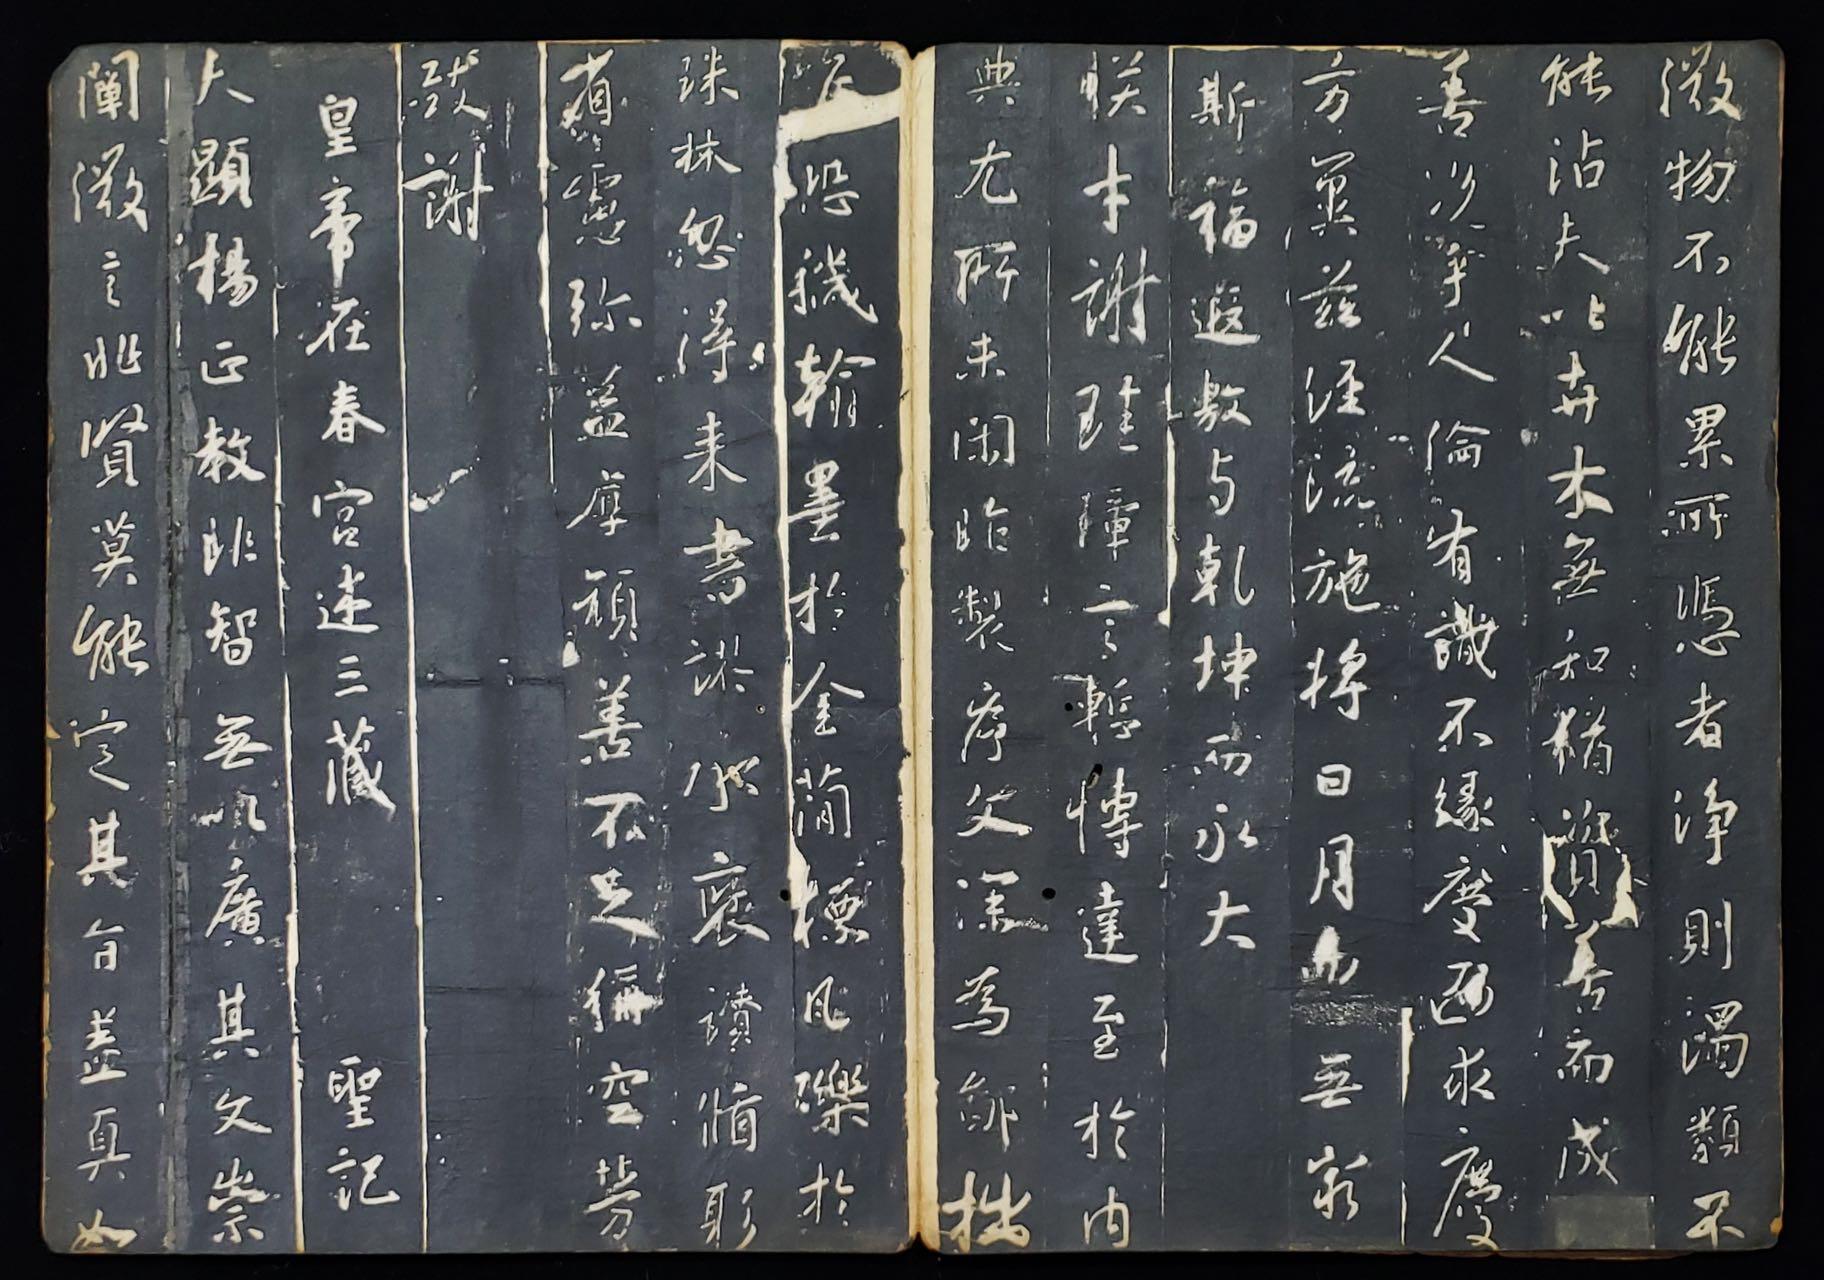 微物不能累所憑者淨則濁類不
能沾夫以卉木無知猶資善而成
善況乎人倫有識不緣慶而求慶
方冀茲經流施將日月而無窮
斯福遐敷与乾坤而永大
朕才謝珪璋言慙博達至於內
典尤所未閑昨製序文深為鄙拙
恐穢翰墨於金簡標瓦礫於
珠林忽得来書謬承褒讚循躬
省慮弥益厚顏善不足稱空勞
致謝
皇帝在春宮述三藏 聖記
夫顯揚正教非智無以廣其文崇
闡微言非賢莫能定其旨蓋真如